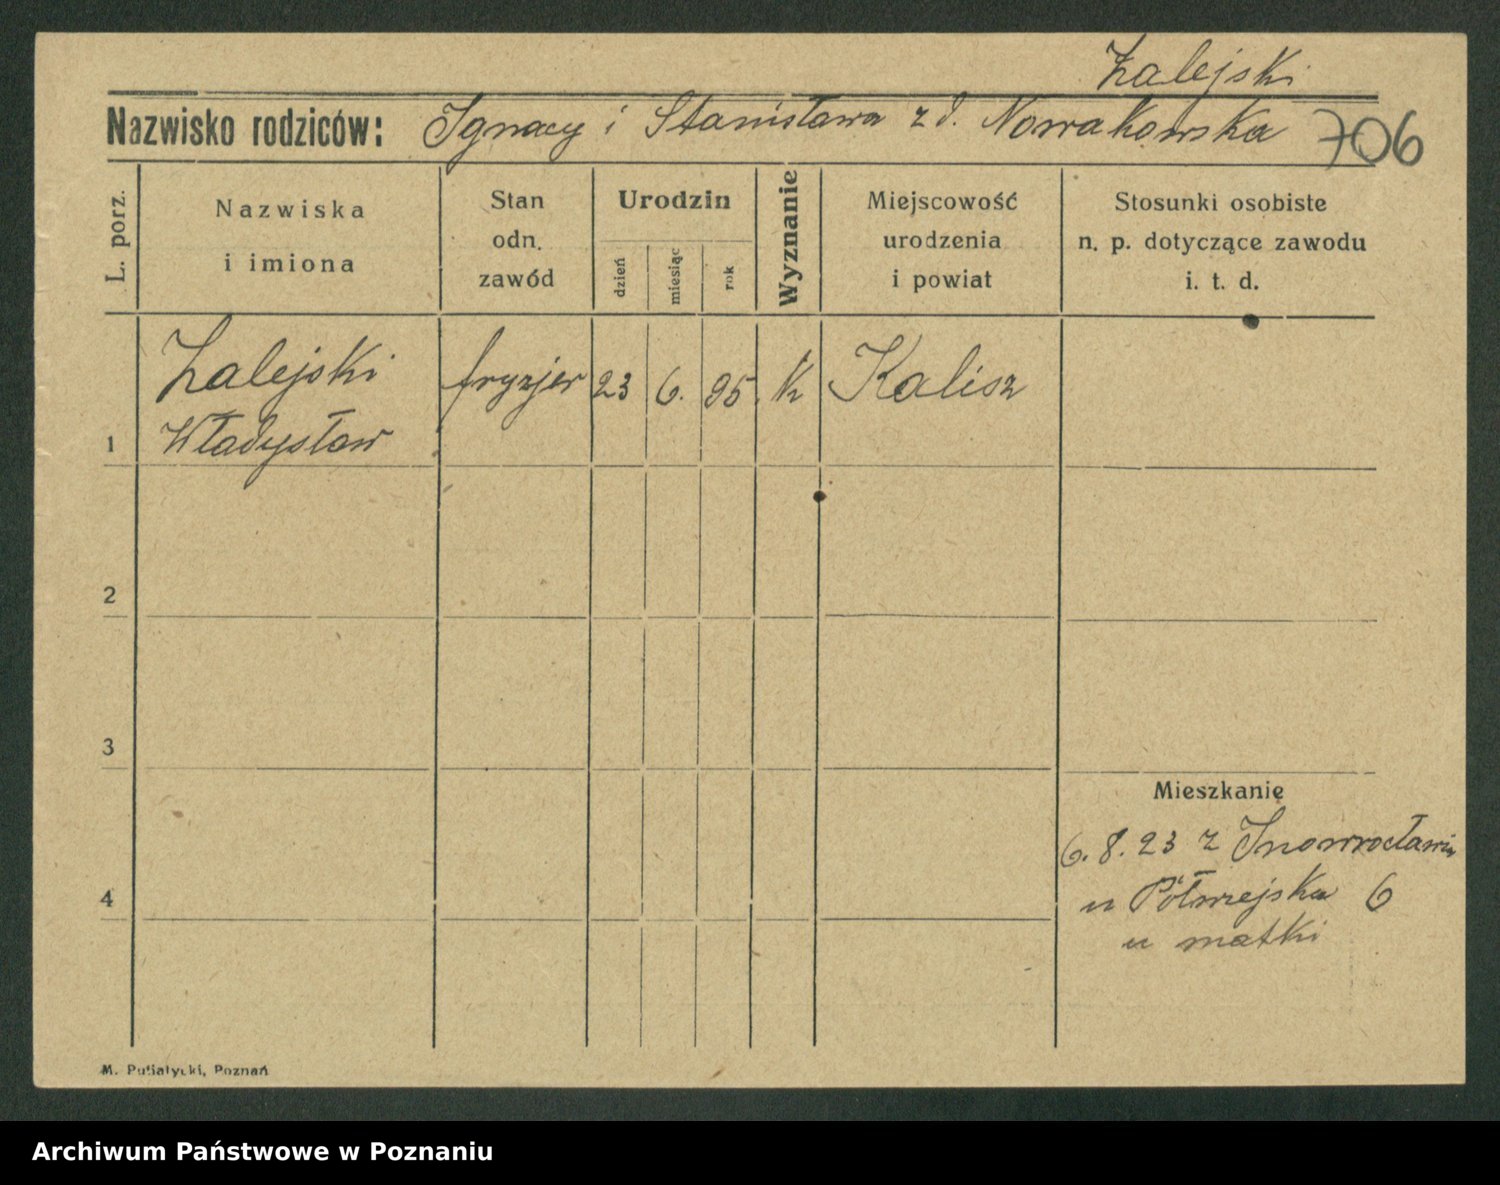 Zalejski
Nazwisko rodziców: Ignacy i Stanisława z d. Nowakowska 706
L. porz.
Nazwiska
i imiona
Stan
odn.
zawód
Urodzin
dzień
miesiąc
rok
Wyznanie
Miejscowość
urodzenia
i powiat
Stosunki osobiste
n. p. dotyczące zawodu
i. t. d.
Zalejski fryzjer 23 6. 95. k Kalisz
1 Władysław
2
3
Mieszkanię
6. 8. 23 z Inowrocławia
4 u Półwiejska 6
u matki
M. Putiatycki, Poznań
Archiwum Państwowe w Poznaniu